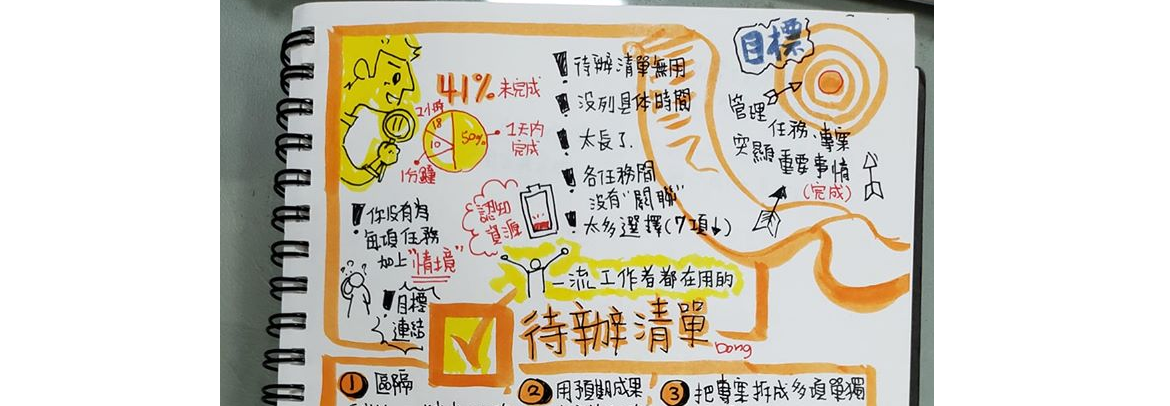 41% 未完成
1小時
18
50%
10
1分鐘
1天內
完成
你沒有為
每項任務
加上"情境"
目標
連結
認知
資源
待辦清單無用
沒列具体時間
太長了.
各任務間
沒有"關聯"
太多選擇(7項↓)
目標
管理
任務、專案
突顯 重要事情
(完成)
一流工作者都在用的
待辦清單
Dong
1 區隔
2 用預期成果
3 把專案拆成多項單獨